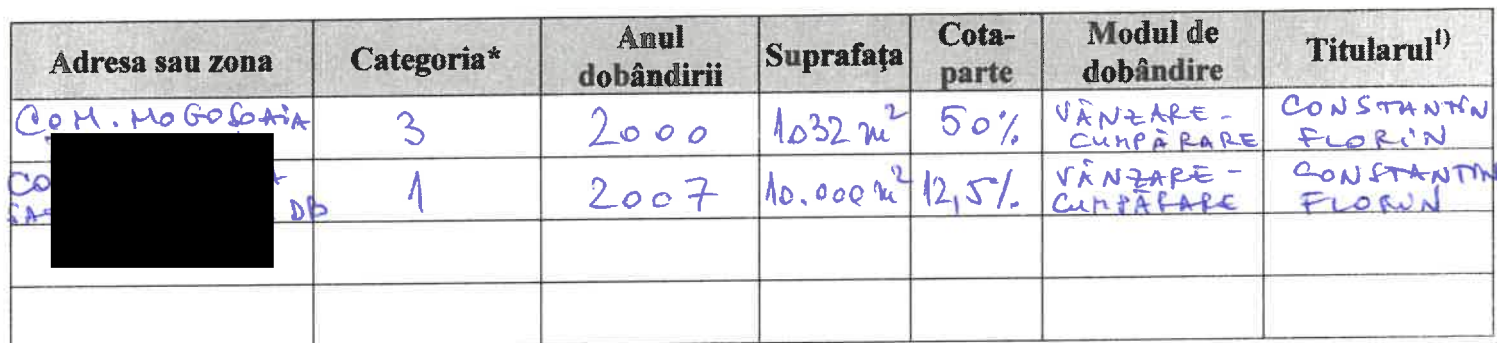 Adresa sau zona Categoria* Anul dobândirii Suprafaţa Cota-parte Modul de dobândire Titularul¹⁾
COM. MOGOȘOAIA 3 2000 1032 m² 50% VÂNZARE - CUMPĂRARE CONSTANTIN FLORIN
DB 1 2007 10.000 m² 12,5% VÂNZARE - CUMPĂRARE CONSTANTIN FLORIN